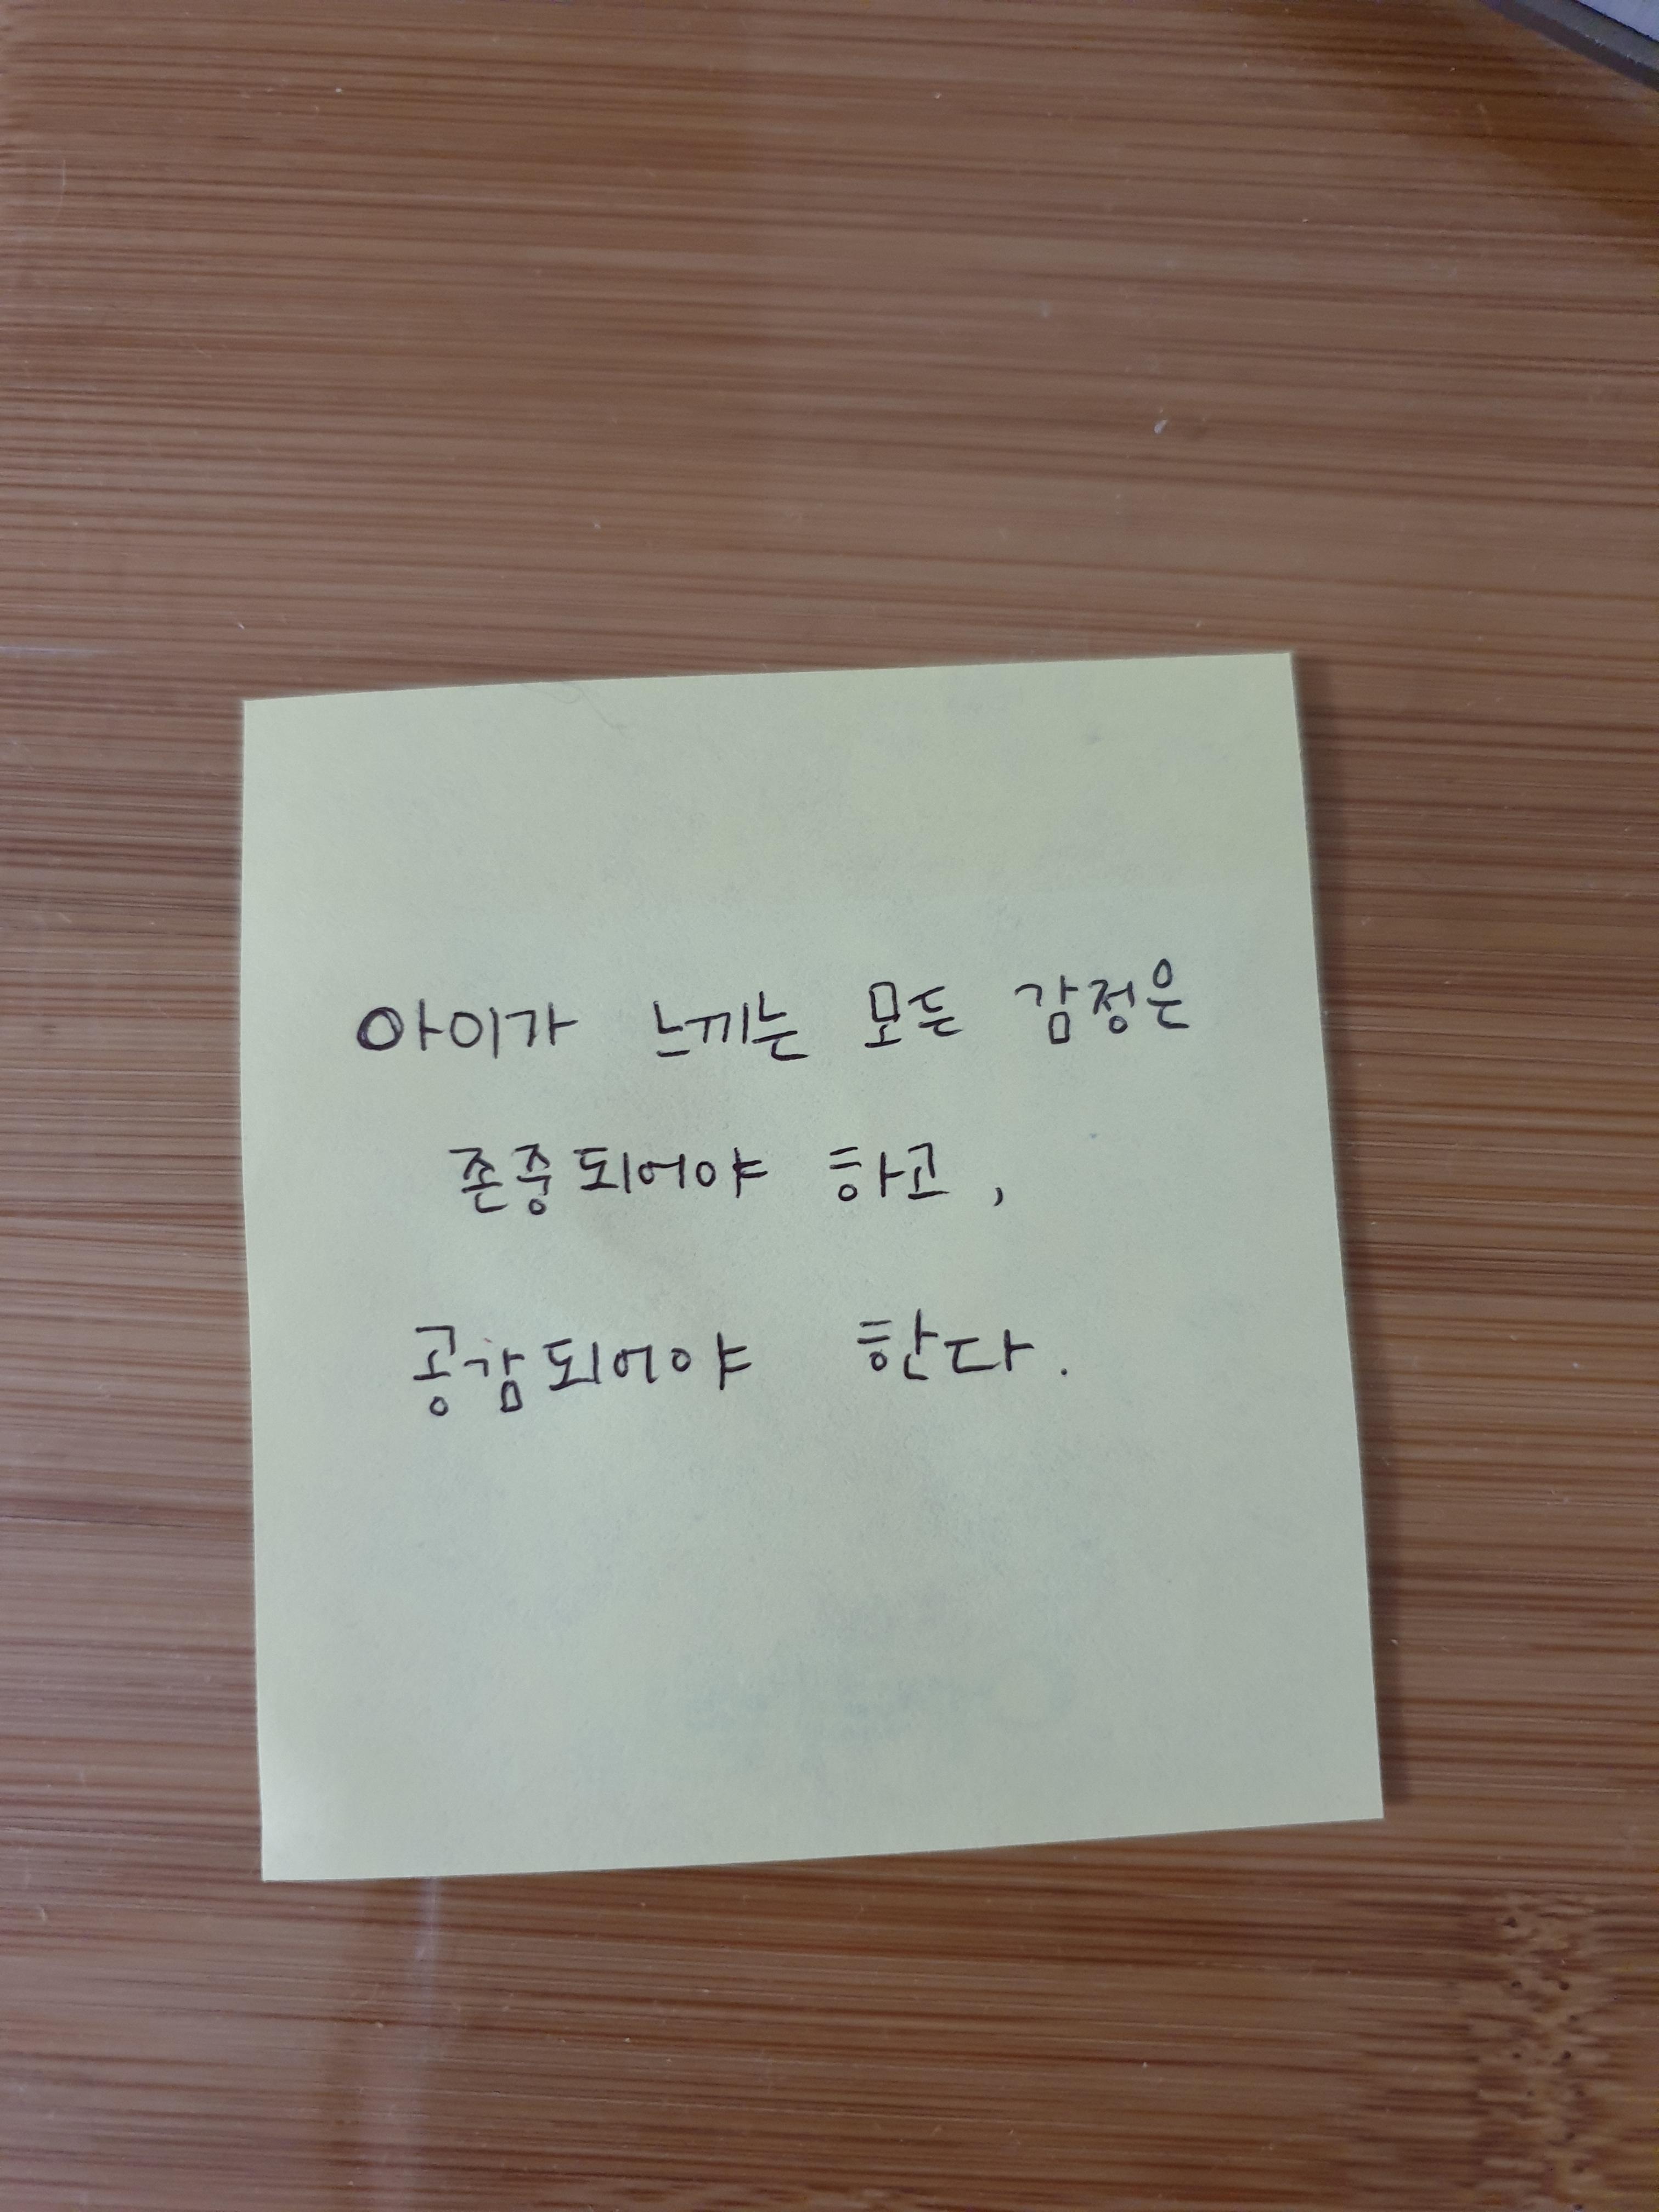 아이가 느끼는 모든 감정은
존중되어야 하고,
공감되어야 한다.